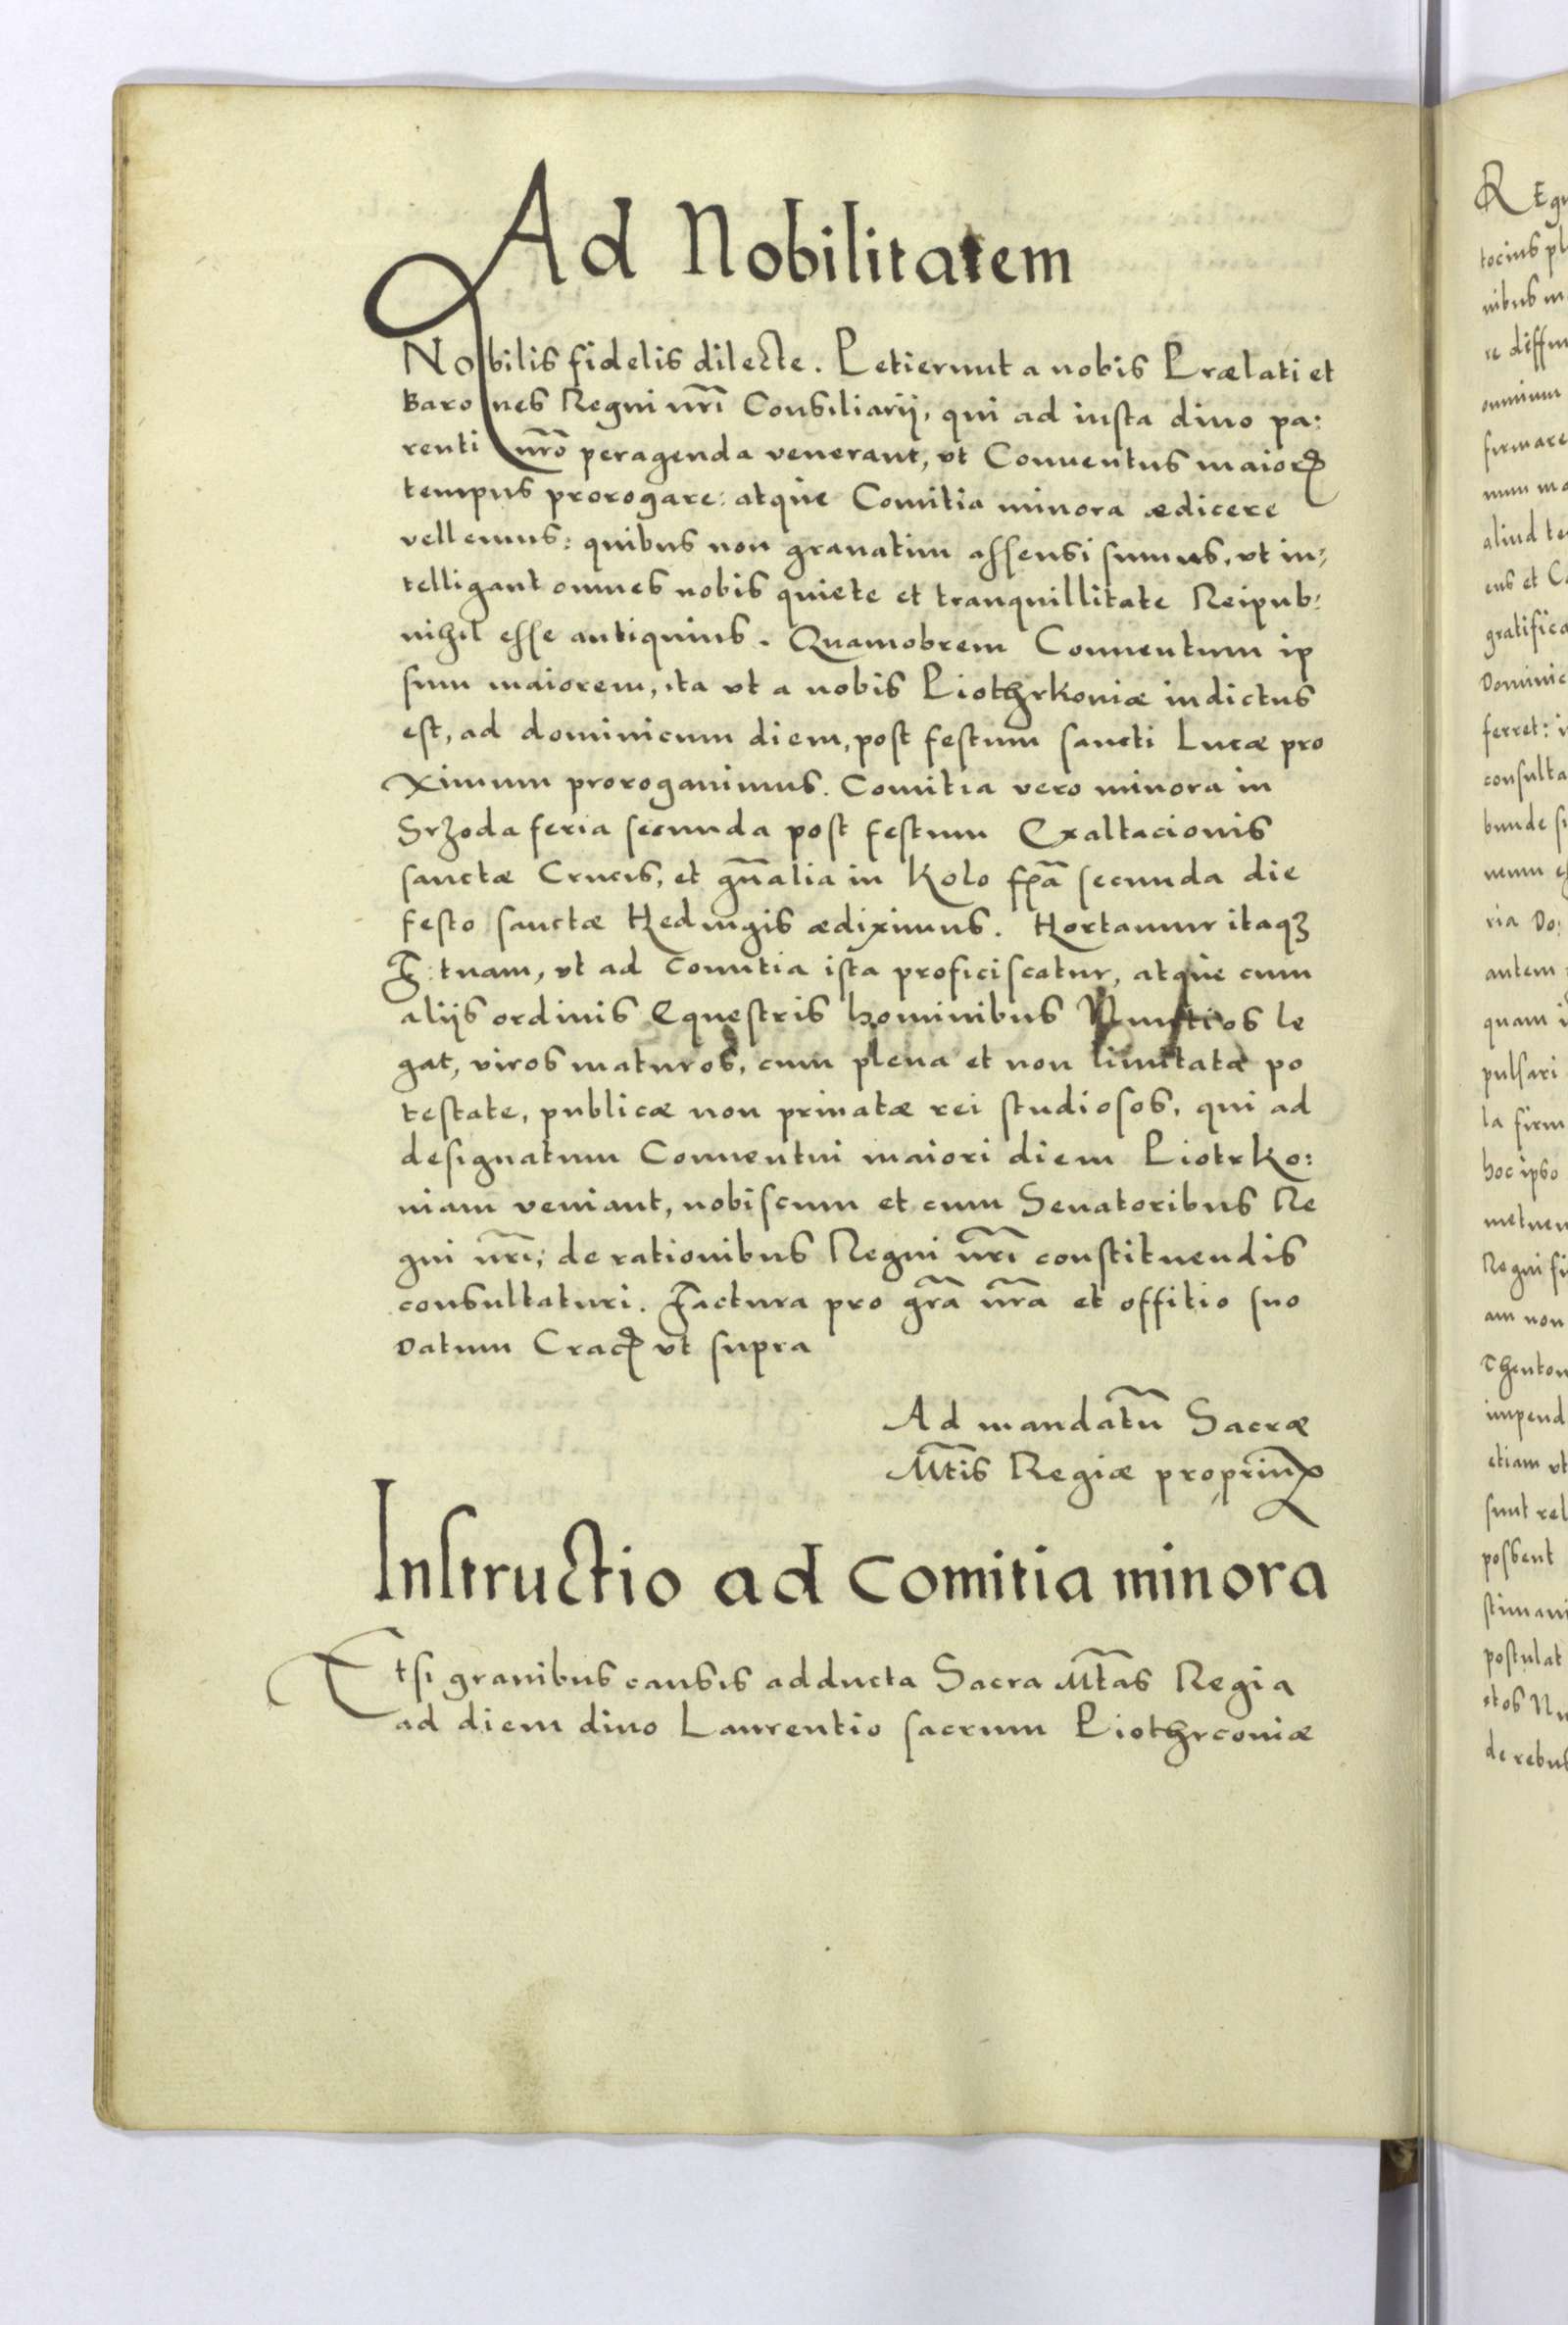 Ad Nobilitatem
Nobilis fidelis dilecte. Petierunt a nobis Prælati et
Barones Regni nr̃i Consiliarij, qui ad iusta diuo pa:
renti nr̃o peragenda venerant, vt Conuentus maioꝝ
tempus prorogare: atque Comitia minora ædicere
vellemus: quibus non grauatim assensi sumus, vt in⸗
telligant omnes nobis quiete et tranquillitate Reipub:
nihil esse antiquius. Quamobrem Conuentum ip
sum maiorem, ita vt a nobis Piothrkoniæ indictus
est, ad dominicum diem, post festum sancti Lucæ pro
ximum prorogauimus. Comitia vero minora in
Srzoda feria secunda post festum Exaltacionis
sanctæ Crucis, et gñalia in Kolo fr̃a secunda die
festo sanctæ Heduigis ædiximus. Hortamur itaqꝫ
F: tuam, vt ad Comitia ista proficiscatur, atque cum
alijs ordinis Equestris hominibus Nuntios le
gat, viros maturos, cum plena et non limitata po
testate, publicæ non priuatæ rei studiosos, qui ad
designatum Conuentui maiori diem Piotrko:
niam veniant, nobiscum et cum Senatoribus Re
gni nr̃i, de rationibus Regni nr̃i constituendis
consultaturi. Factura pro gr̃a nr̃a et offitio suo
Datum Cracꝝ vt supra
Ad mandatũ Sacræ
Mt̃is Regiæ propriũ
Instructio ad Comitia minora
Etsi grauibus causis adducta Sacra Mt̃as Regia
ad diem diuo Laurentio sacrum Piothrconiæ